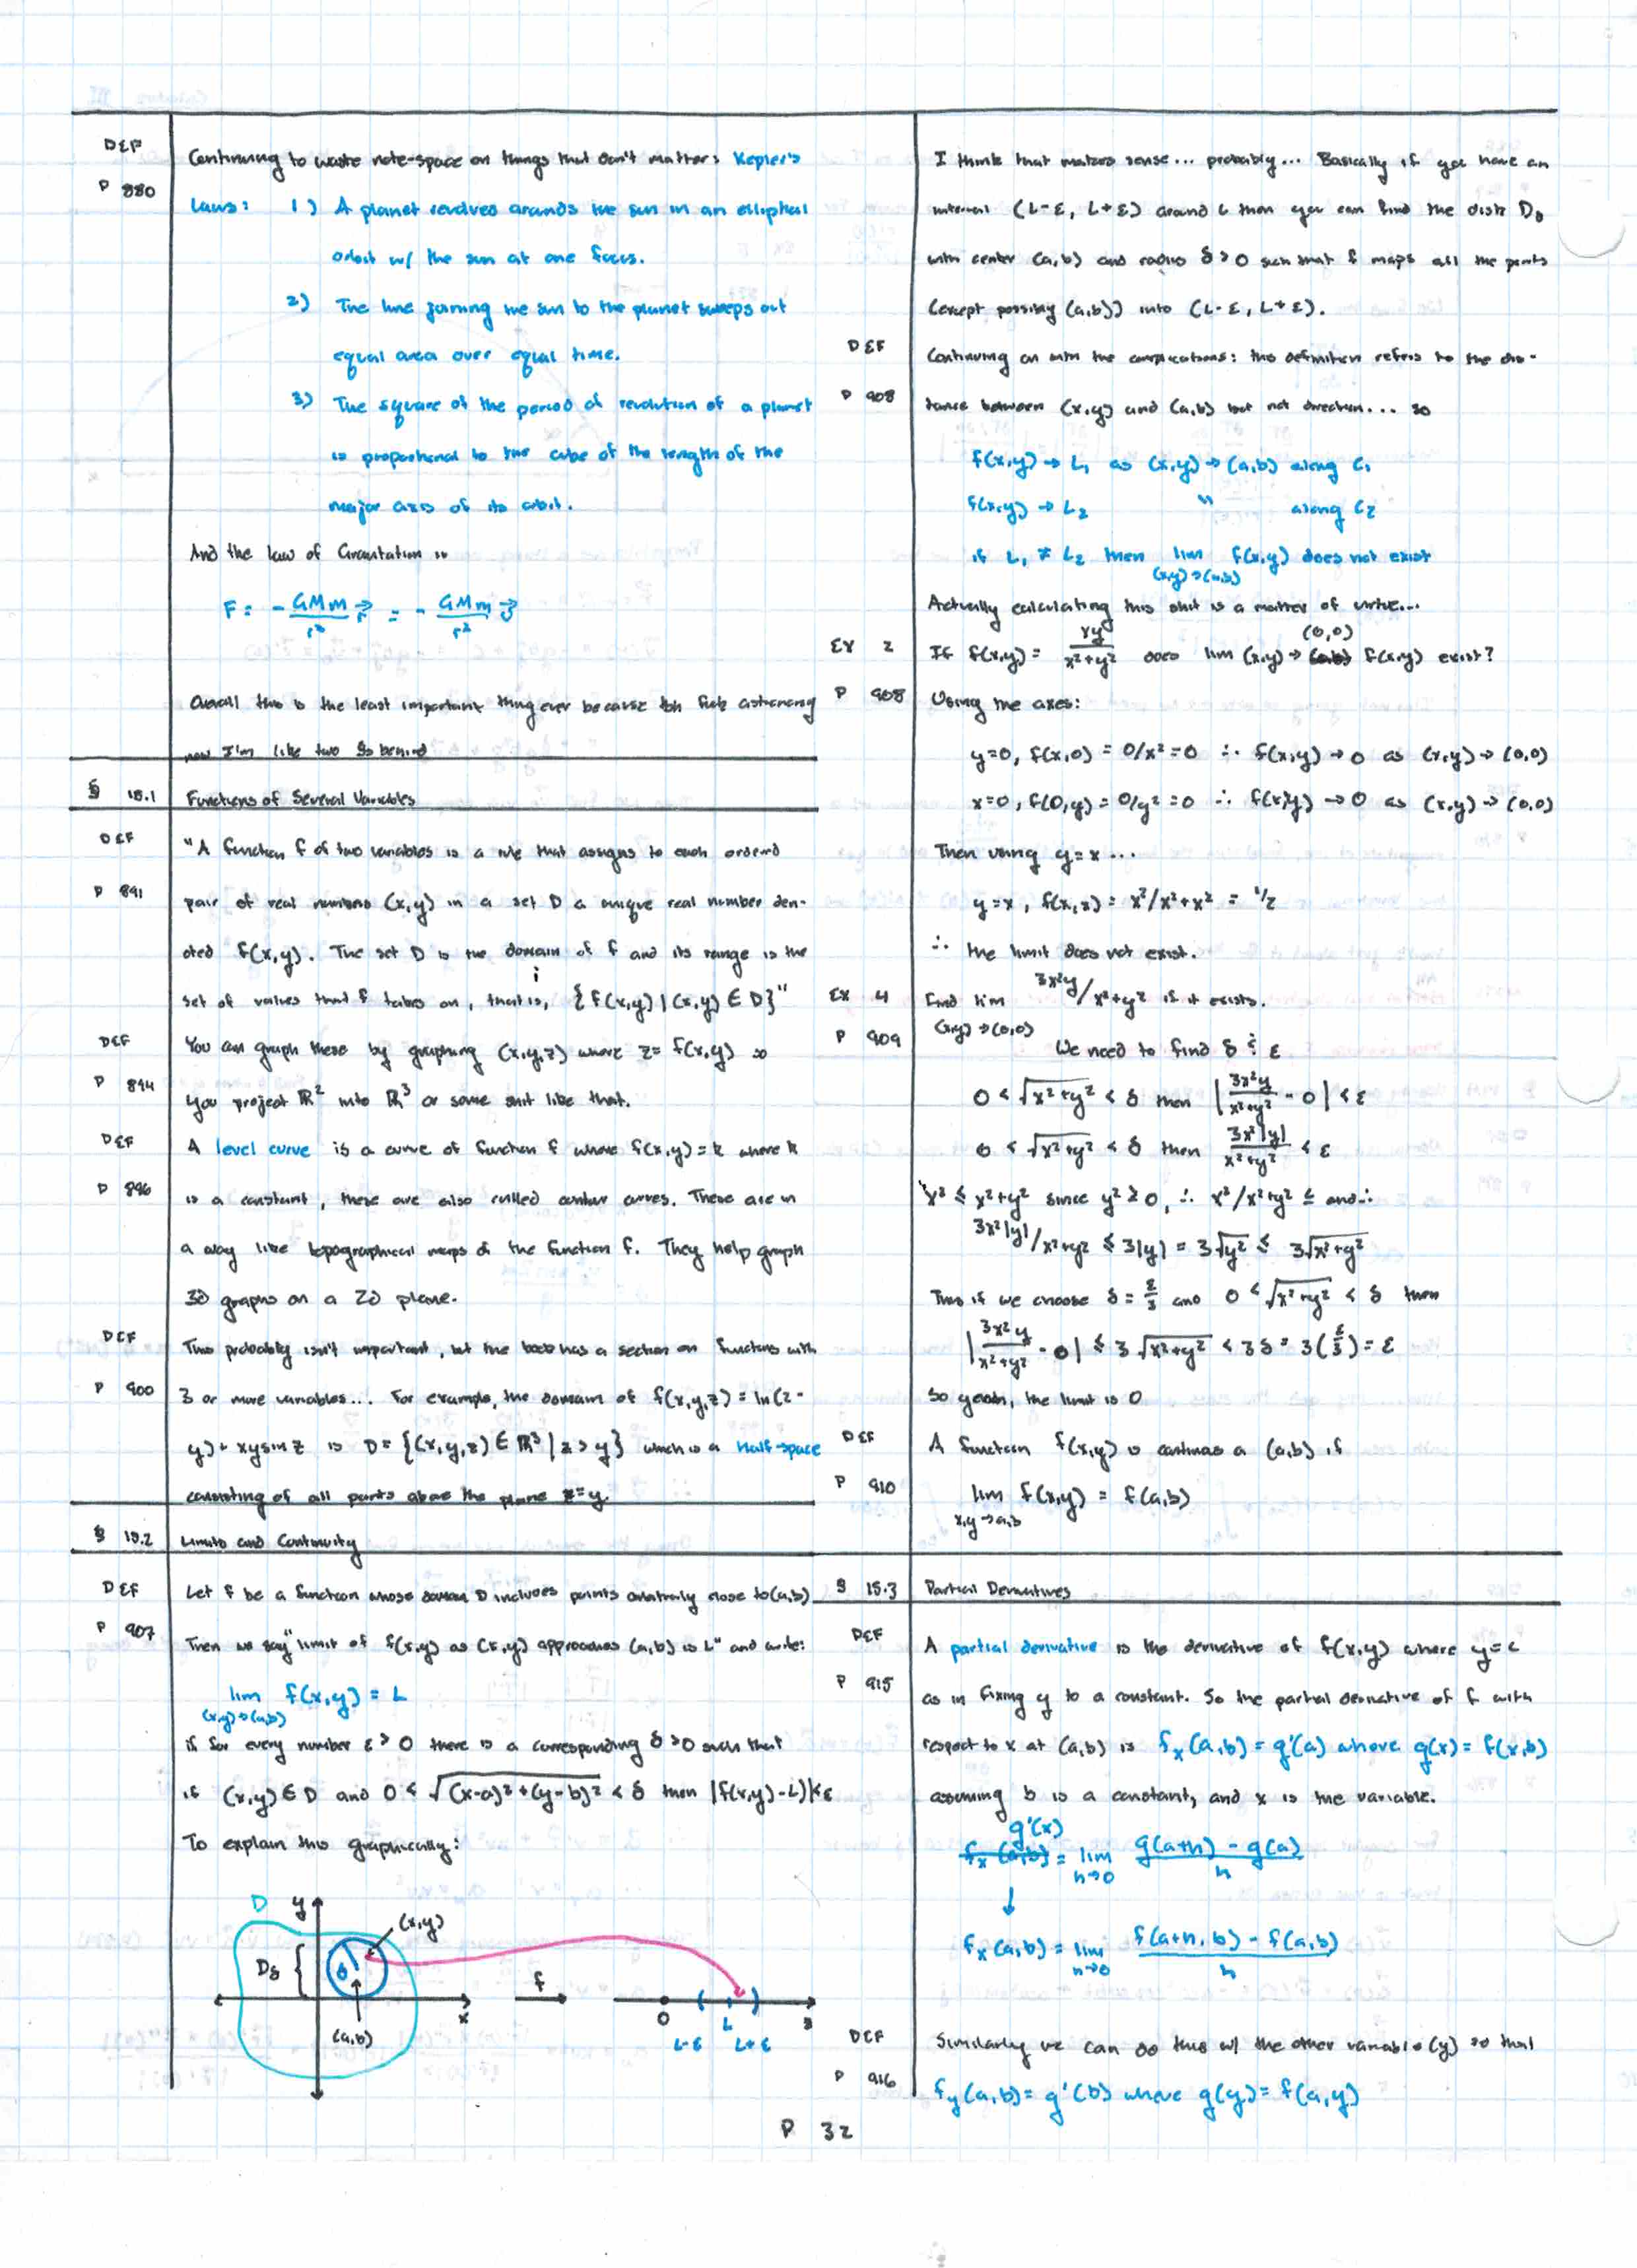 DEF Continuing to waste note-space on things that don't matter: Kepler's
P 880 Laws: 1) A planet revolves arounds the sun in an elliptical
orbit w/ the sun at one focus.
2) The line joining the sun to the planet sweeps out
equal area over equal time.
3) The square of the period of revolution of a planet
is proportional to the cube of the length of the
major axis of its orbit.
And the law of Gravitation is
F = - GMm/r³ r⃗ = - GMm/r² u⃗
Overall this is the least important thing ever because fuck astronomy
now I'm like two §s behind
§ 15.1 Functions of Several Variables
DEF "A function f of two variables is a rule that assigns to each ordered
P 891 pair of real numbers (x,y) in a set D a unique real number den-
oted f(x,y). The set D is the domain of f and its range is the
set of values that f takes on, that is, {f(x,y) | (x,y) ∈ D}"
DEF You can graph these by graphing (x,y,z) where z = f(x,y) so
P 894 you project ℝ² into ℝ³ or some shit like that.
DEF A level curve is a curve of function f where f(x,y) = k where k
P 896 is a constant, these are also called contour curves. These are in
a way like topographical maps of the function f. They help graph
3D graphs on a 2D plane.
DEF This probably isn't important, but the book has a section on functions with
P 900 3 or more variables... For example, the domain of f(x,y,z) = ln(z-
y) + xysinz is D = {(x,y,z) ∈ ℝ³ | z > y} which is a half-space
consisting of all points above the plane z=y.
§ 15.2 Limits and Continuity
DEF Let f be a function whose domain D includes points arbitrarly close to (a,b)
P 907 Then we say "limit of f(x,y) as (x,y) approaches (a,b) is L" and write:
lim f(x,y) = L
(x,y)→(a,b)
if for every number ε > 0 there is a corresponding δ > 0 such that
if (x,y) ∈ D and 0 < √(x-a)²+(y-b)² < δ then |f(x,y)-L)|<ε
To explain this graphically:
D y (x,y)
Dδ δ f
x 0 L z
(a,b) L-ε L+ε
I think that makes sense... probably... Basically if you have an
interval (L-ε, L+ε) around L then you can find the disk Dδ
with center (a,b) and radius δ > 0 such that f maps all the points
(except possibly (a,b)) into (L-ε, L+ε).
DEF Continuing on with the complications: this definition refers to the dis-
P 908 tance between (x,y) and (a,b) but not direction... so
f(x,y) → L₁ as (x,y) → (a,b) along C₁
f(x,y) → L₂ " along C₂
if L₁ ≠ L₂ then lim f(x,y) does not exist
(x,y)→(a,b)
Actually calculating this shit is a matter of virtue...
(0,0)
EX 2 If f(x,y) = xy/x²+y² does lim (x,y) → (a,b) f(x,y) exist?
P 908 Using the axes:
y=0, f(x,0) = 0/x² = 0 ∴ f(x,y) → 0 as (x,y) → (0,0)
x=0, f(0,y) = 0/y² = 0 ∴ f(x,y) → 0 as (x,y) → (0,0)
Then using y=x ...
y=x, f(x,x) = x²/x²+x² = 1/2
∴ the limit does not exist.
EX 4 Find lim 3x²y/x²+y² if it exists.
P 909 (x,y)→(0,0)
We need to find δ & ε
0 < √x²+y² < δ then |3x²y/x²+y² - 0| < ε
0 < √x²+y² < δ then 3x²|y|/x²+y² < ε
x² ≤ x²+y² since y² ≥ 0, ∴ x²/x²+y² ≤ and ∴
3x²|y|/x²+y² ≤ 3|y| = 3√y² ≤ 3√x²+y²
Thus if we choose δ = ε/3 and 0 < √x²+y² < δ then
|3x²y/x²+y² - 0| ≤ 3√x²+y² < 3δ = 3(ε/3) = ε
So yeah, the limit is 0
DEF A function f(x,y) is continuos a (a,b) if
P 910 lim f(x,y) = f(a,b)
x,y→a,b
§ 15.3 Partial Derivatives
DEF A partial derivative is the derivative of f(x,y) where y=c
P 915 as in fixing y to a constant. So the partial derivative of f with
respect to x at (a,b) is fx(a,b) = g'(a) where g(x) = f(x,b)
assuming b is a constant, and x is the variable.
g'(x)
fx(a,b) = lim g(a+h) - g(a)/h
h→0
↓
fx(a,b) = lim f(a+h, b) - f(a,b)/h
h→0
DEF Similarly we can do this w/ the other variable (y) so that
P 916 fy(a,b) = g'(b) where g(y) = f(a,y)
P 32